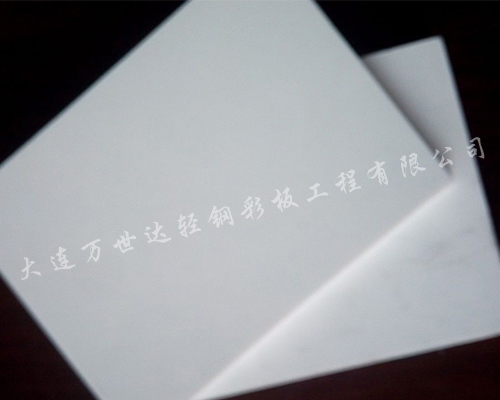 大连万世达轻钢彩板工程有限公司